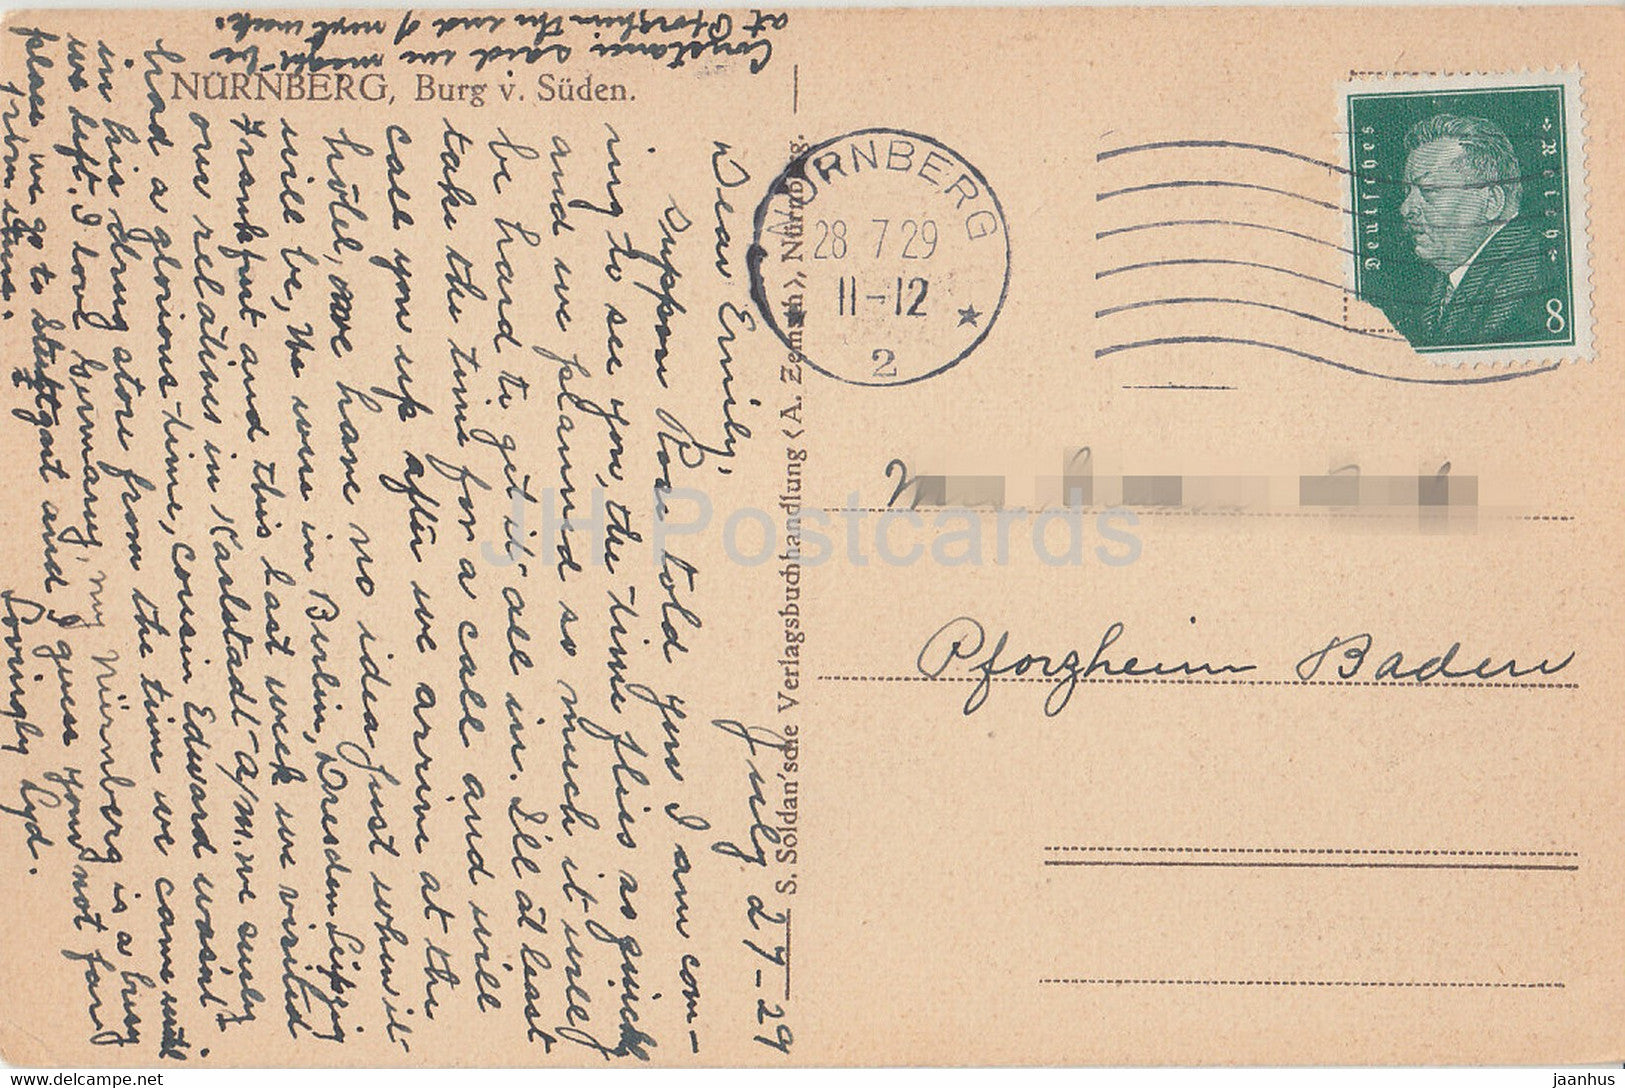 NÜRNBERG, Burg v. Süden.
July 27-29
Dear Emily,
Suppose Rose told you I am com-
ing to see you, the time flies as quick
and we planned so much it will
be hard to get it all in. I'll at least
take the time for a call and will
call you up after we arrive at the
hotel, we have no idea just when it
will be, We were in Berlin, Dresden Leipzig
Frankfurt and this last week we visited
our relatives in Karlstadt a/M. we surely
had a glorious time, cousin Edward wasn't
in his drug store from the time we came until
we left. I love Germany, my Nürnberg is a busy
place we go to Stuttgart and I guess your not far
from there.
Lovingly Lyd.
Constance said we might be
at Pforzheim the end of next week.
S. Soldan'sche Verlagsbuchhandlung (A. Zemsch), Nürnberg.
NÜRNBERG
28 7 29
11-12
2
Deutsches Reich
8
Pforzheim Baden
JH Postcards
delcampe.net
jaanhus